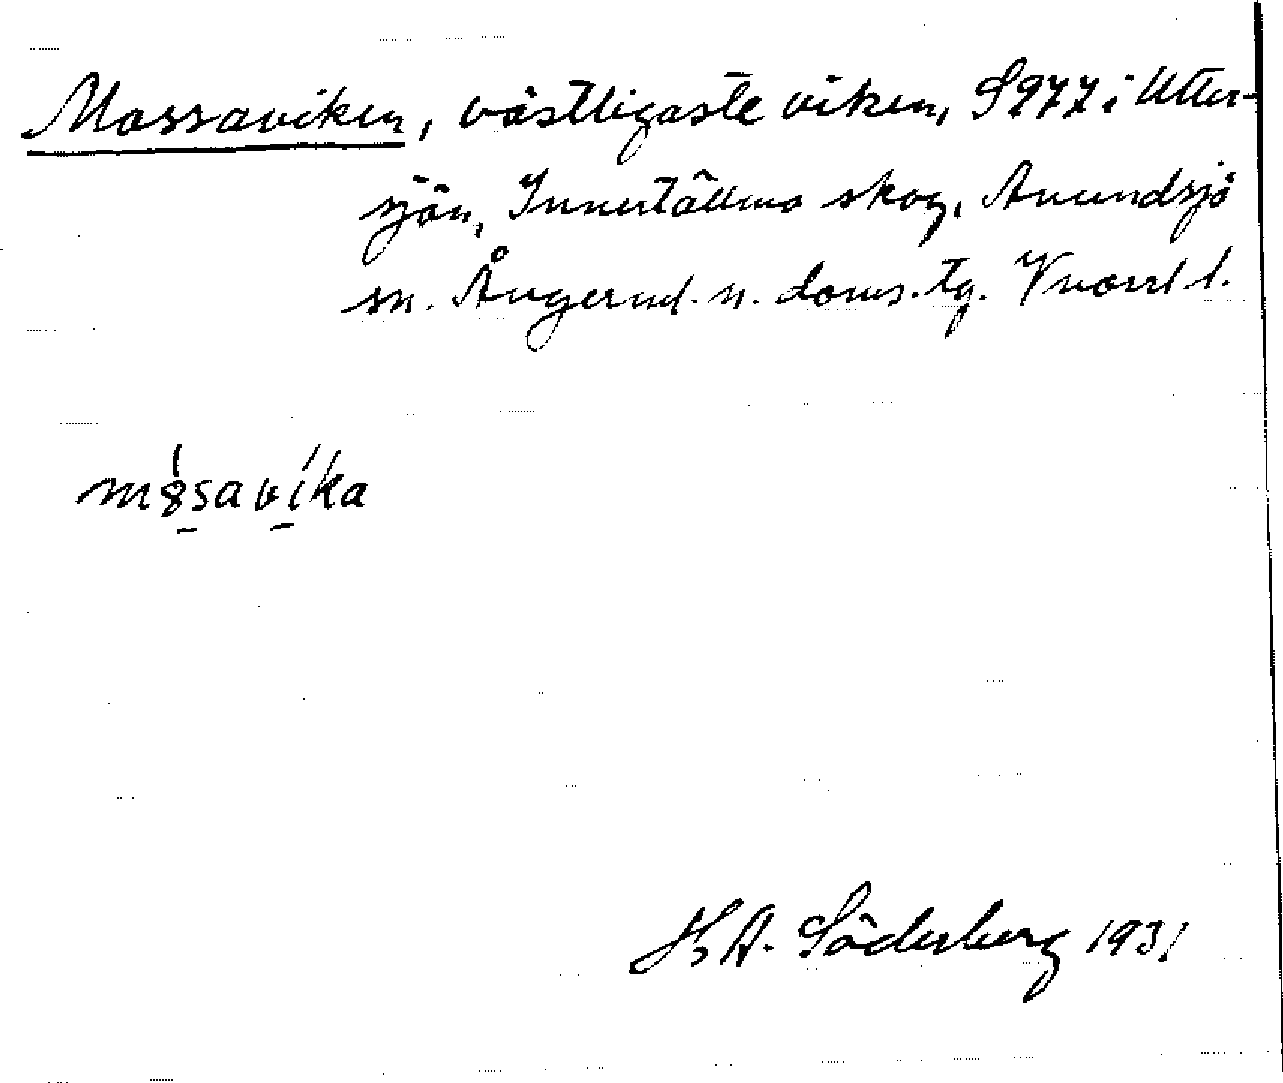 Mossaviken, västligaste viken, S977 i Utter-
sjön, Innertällmo skog, Anundsjö
sn. Ångerml. n. doms. tg. Vnorrl l.
mȯsavíka
H A. Söderberg 1931